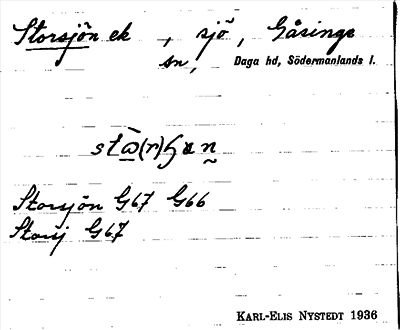 Storsjön ek , sjö , Gåsinge
sn, Daga hd, Södermanlands l.
Storsjön G67 G66
Storsj G67
KARL-ELIS NYSTEDT 1936